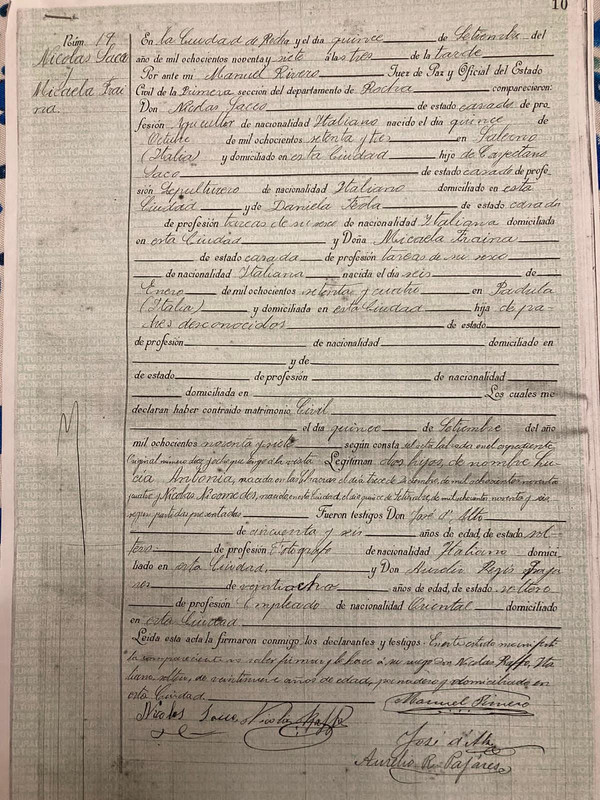 10
Núm. 19
Nicolas Saco
y
Micaela Frai
na.
En la Ciudad de Rocha y el día quince de Setiembre del
año de mil ochocientos noventa y siete a las tres de la tarde
Por ante mi Manuel Rivero Juez de Paz y Oficial del Estado
Civil de la Primera sección del departamento de Rocha comparecieron:
Don Nicolas Saco de estado casado de pro-
fesión Agricultor de nacionalidad Italiano nacido el día quince de
Octubre de mil ochocientos setenta y tres en Salerno
(Italia) y domiciliado en esta Ciudad hijo de Cayetano
Saco de estado casado de profe-
sión Sepulturero de nacionalidad Italiano domiciliado en esta
Ciudad y de Daniela Feola de estado casada
de profesión tareas de su sexo de nacionalidad Italiana domiciliada
en esta Ciudad y Doña Micaela Fraina
de estado casada de profesión tareas de su sexo
de nacionalidad Italiana nacida el día seis de
Enero de mil ochocientos setenta y cuatro en Padula
(Italia) y domiciliada en esta Ciudad hija de pa-
dres desconocidos de estado
de profesión de nacionalidad domiciliado en
y de
de estado de profesión de nacionalidad
domiciliada en Los cuales me
declaran haber contraido matrimonio Civil
el día quince de Setiembre del año
mil ochocientos noventa y siete según consta del acta labrada en el expediente
Original número diez y ocho que tengo a la vista. Legitiman dos hijos, de nombre Lu-
cia Antonia, nacida en el día trece de de mil ochocientos noventa
y cuatro y Nicolas Nicomedes, nacido en esta Ciudad, el día quince de Setiembre de mil ochocientos noventa y seis
segun partidas presentadas Fueron testigos Don José d'Alto
de cincuenta y seis años de edad, de estado sol-
tero de profesión Fotógrafo de nacionalidad Italiano domici-
liado en esta Ciudad, y Don Aurelio Regis Paja-
res de veintiocho años de edad, de estado soltero
de profesión Empleado de nacionalidad Oriental domiciliado
en esta Ciudad
Leida esta acta la firmaron conmigo, los declarantes y testigos. En este estado manifestó
la compareciente no saber firmar y lo hace a su ruego Don Nicolas Raffo, Ita-
liano, soltero, de veintinueve años de edad, panadero y domiciliado en
esta Ciudad.
Manuel Rivero
Nicolas Saco Nicolas Raffo
José d'Alto
Aurelio R. Pajares